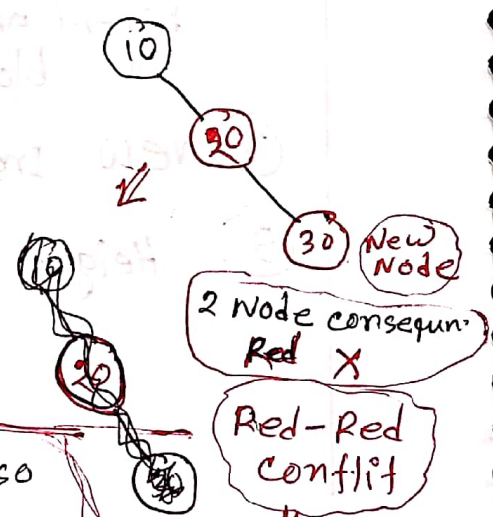 10
20
30
New
Node
10
20
2 Node consequn.
Red X
Red-Red
Conflit
so